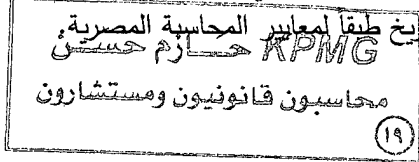 يخ طبقاً لمعايير المحاسبة المصرية.
KPMG حازم حسن
محاسبون قانونيون ومستشارون
١٩